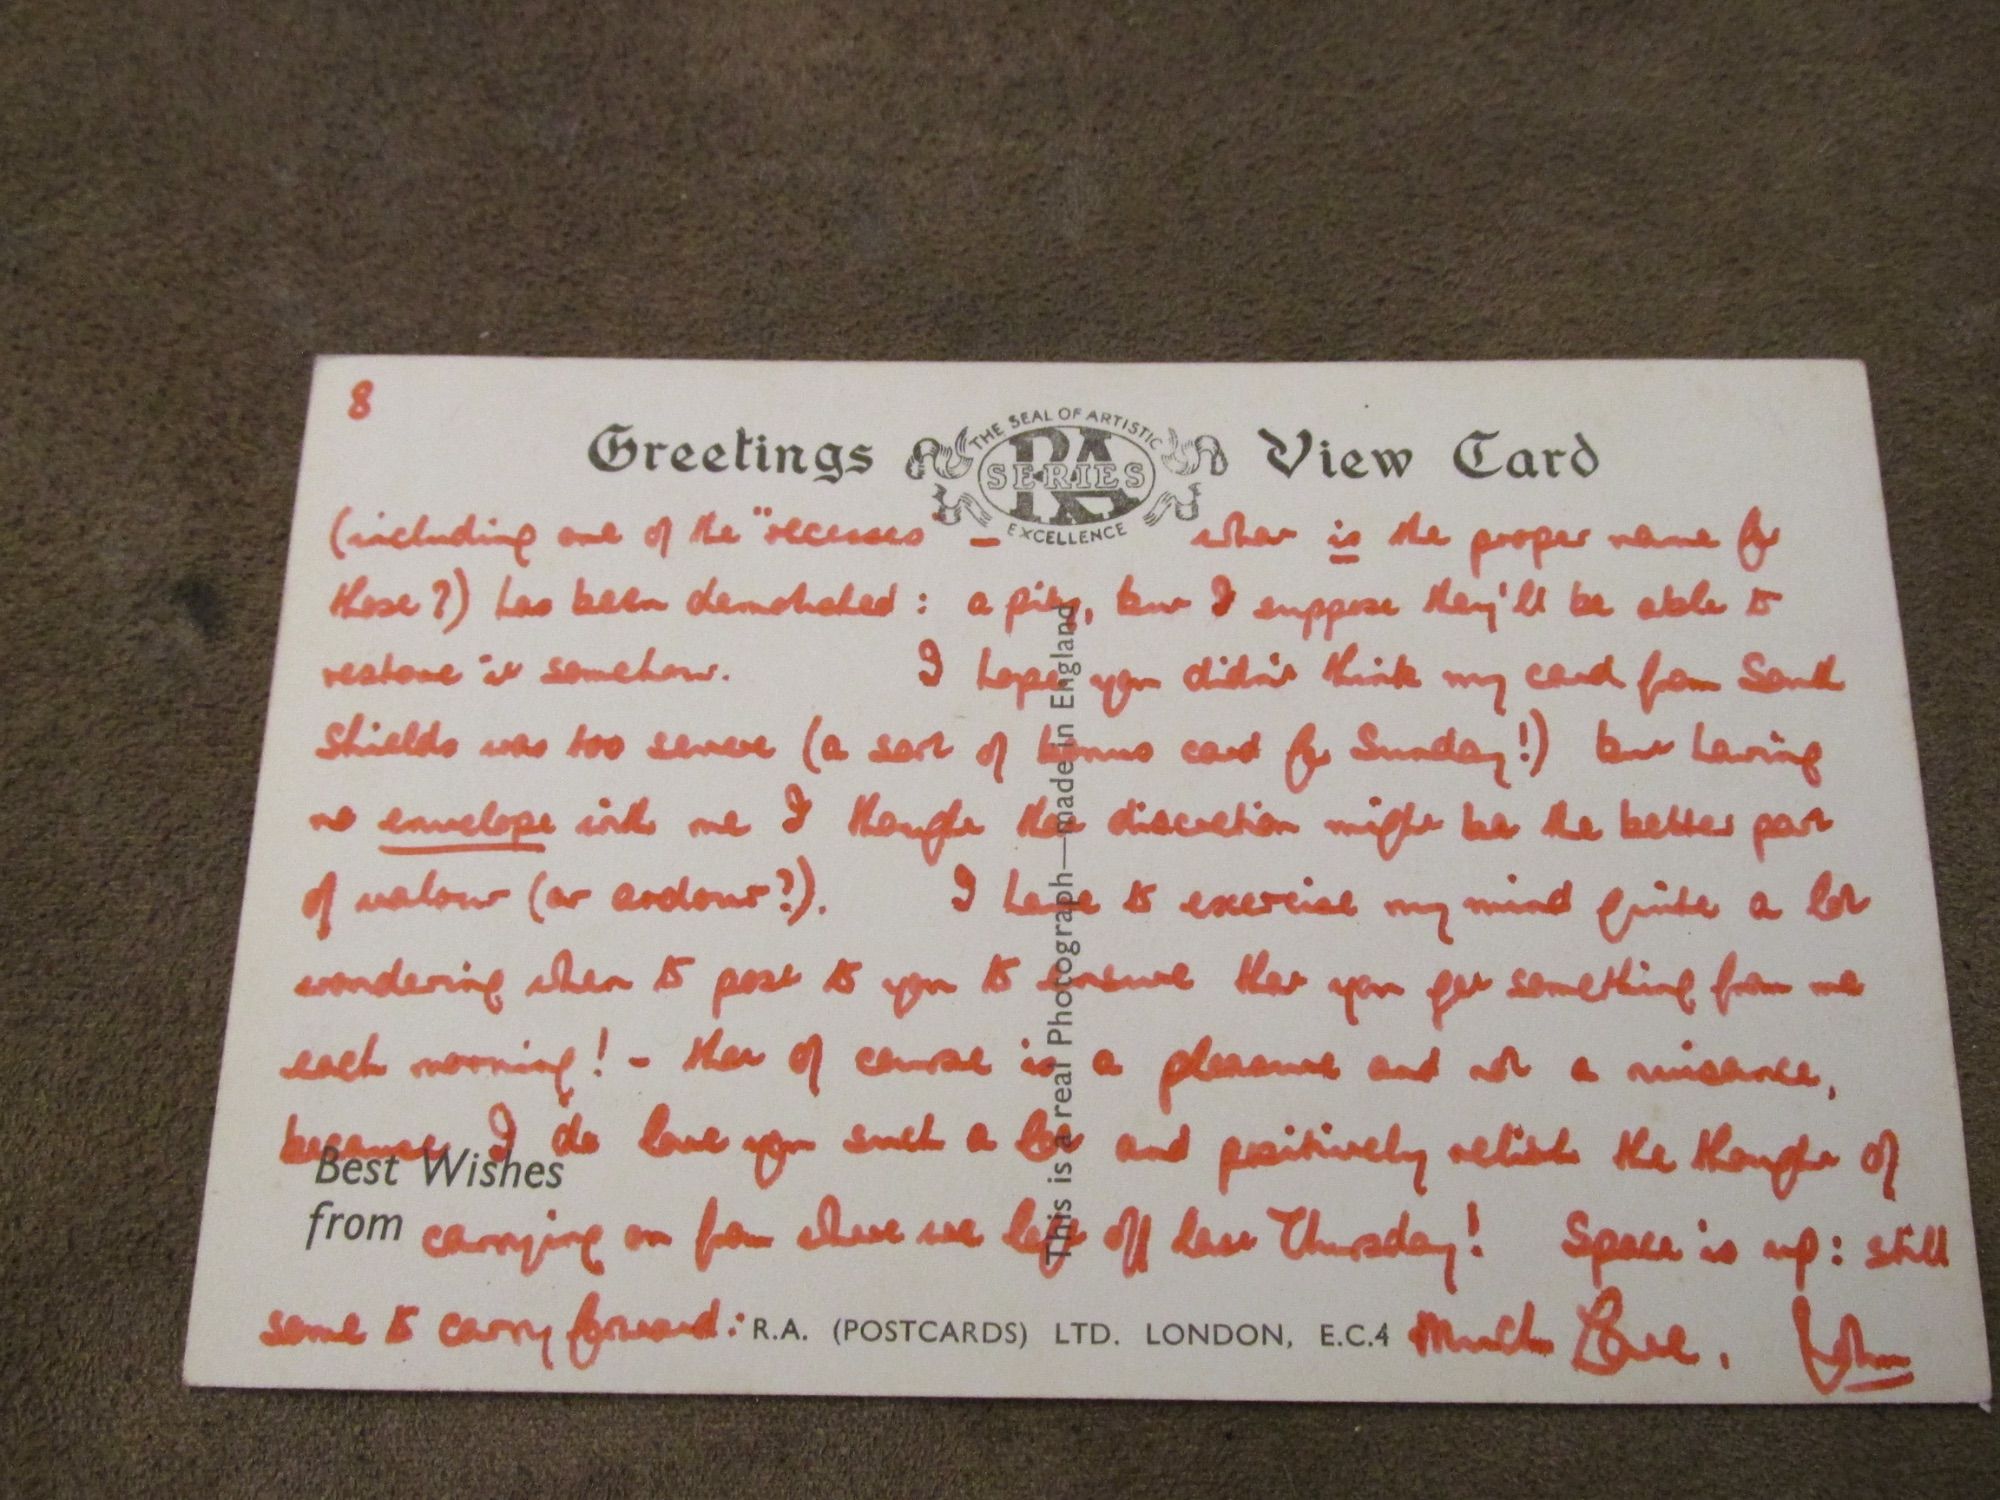 8
Greetings
THE SEAL OF ARTISTIC
RA
SERIES
EXCELLENCE
View Card
(including one of the "recesses" – what is the proper name for
these?) has been demolished : a pity, but I suppose they'll be able to
restore it somehow. I hope you didn't think my card from South
Shields was too severe (a sort of bonus card for Sunday!) but having
no envelope with me I thought that discretion might be the better part
of valour (or ardour?). I have to exercise my mind quite a lot
wondering when to post to you to ensure that you get something from me
each morning! - that of course is a pleasure and not a nuisance,
because I do love you such a lot and positively relish the thought of
Best Wishes
from
carrying on from where we left off last Thursday! Space is up: still
some to carry forward: Much Love, John
R.A. (POSTCARDS) LTD. LONDON, E.C.4
This is a real Photograph—made in England